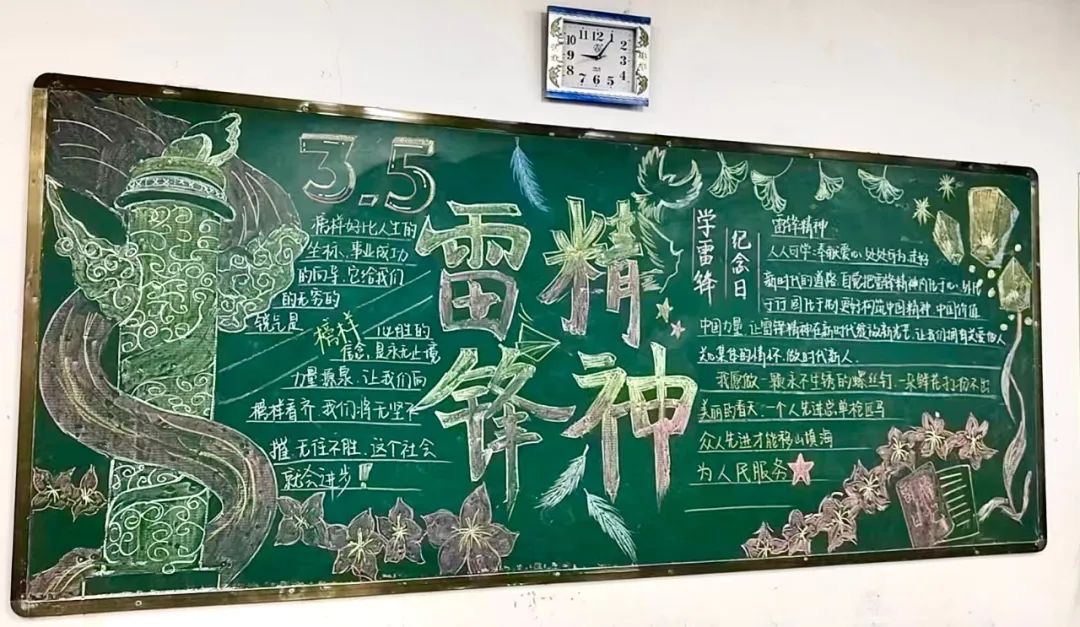 11 12 1
10 2
9 3
8 4
7 6 5
3.5
榜样好比人生的
坐标、事业成功
的向导、它给我们
的无穷的
锐气是
榜样
必胜的
信念,是永无止境
力量源泉,让我们向
榜样看齐,我们将无坚不
摧、无往不胜,这个社会
就会进步!
雷锋
精神
学雷锋
纪念日
雷锋精神
人人可学:奉献爱心,处处可为,走好
新时代的道路,自觉把雷锋精神内化于心、外化
于行
更好构筑中国精神 中国价值
中国力量,让雷锋精神在新时代绽放新光芒,让我们拥有关爱他人
关心集体的情怀,做时代新人.
我愿做一颗永不生锈的螺丝钉,一朵鲜花打扮不出
美丽的春天,一个人先进总单枪匹马
众人先进才能移山填海
为人民服务